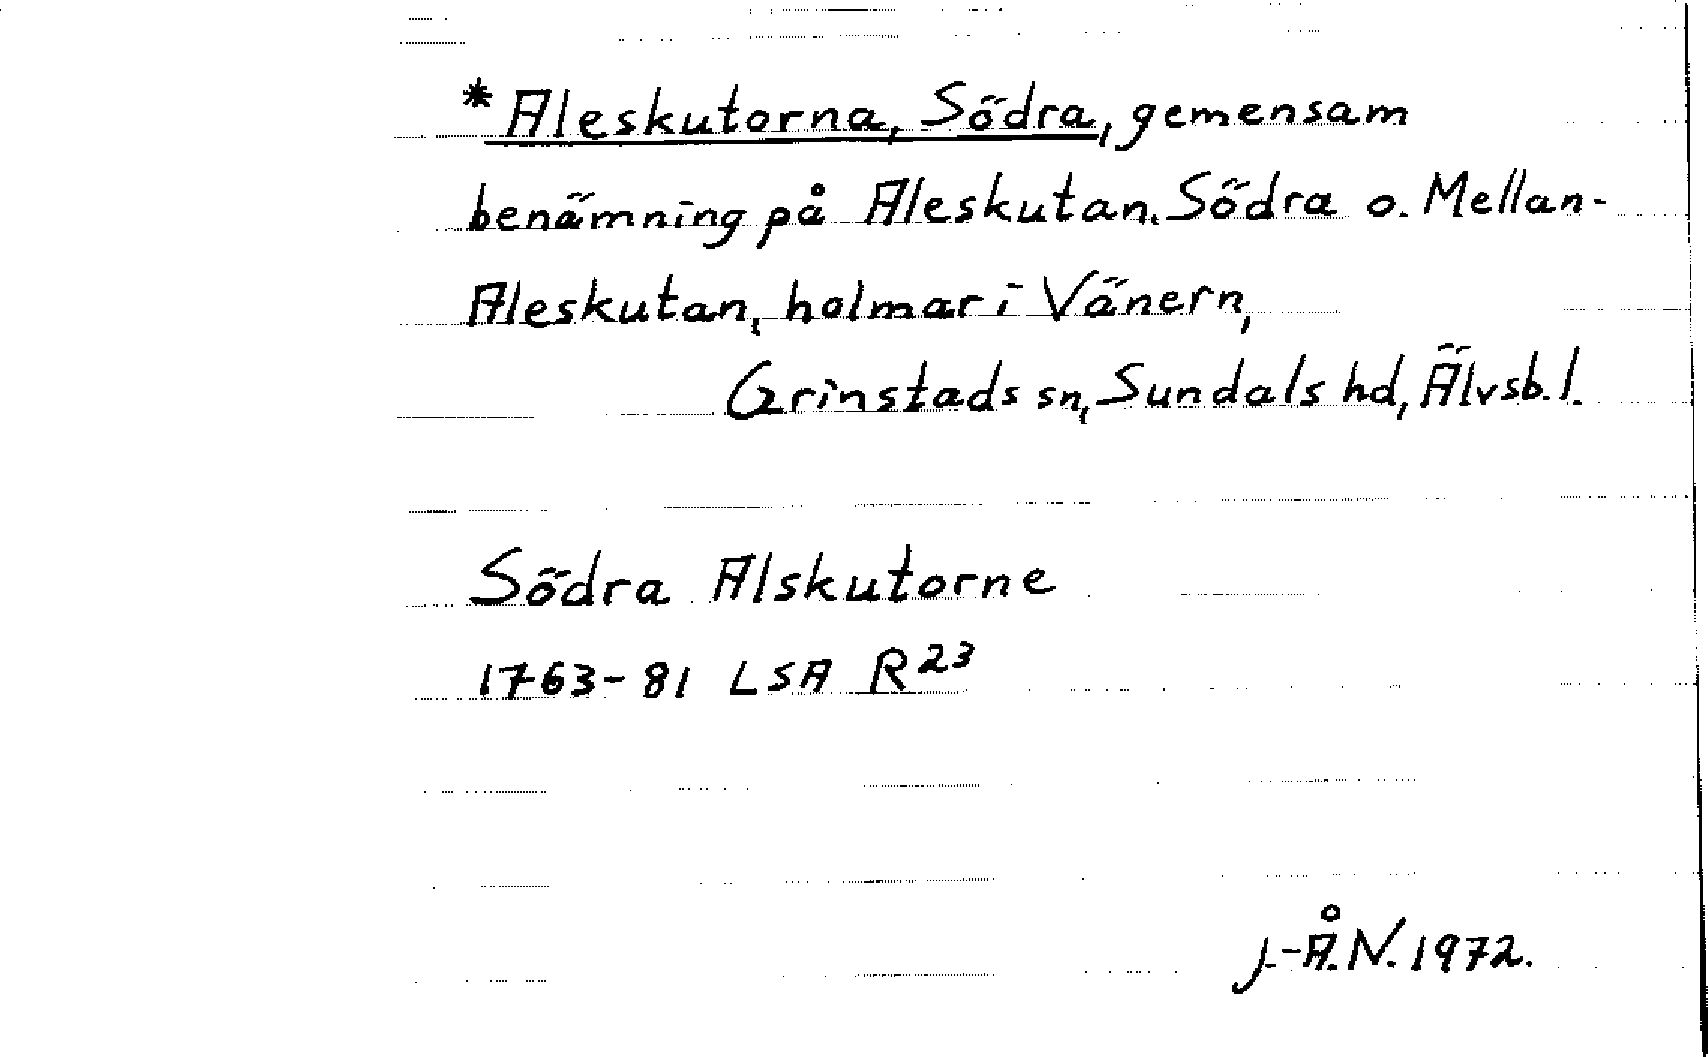 *Aleskutorna, Södra, gemensam
benämning på Aleskutan, Södra o. Mellan-
Aleskutan, holmar i Vänern,
Grinstads sn, Sundals hd, Älvsb. l.
Södra Alskutorne
1763-81 LSA R23
J.-Å.N. 1972.